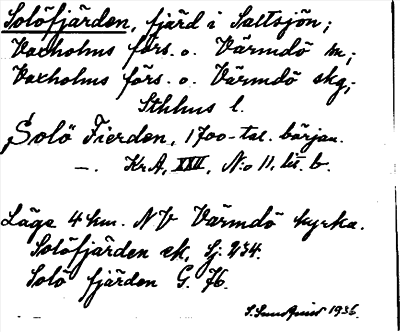 Solöfjärden, fjärd i Saltsjön;
Vaxholms förs. o. Värmdö m.;
Vaxholms förs. o. Värmdö skg;
Sthlms l.
Solö Fierden, 1700-tal. början.
—. Kr.A, XXII, N:o 11, lit. b.
Läge 4 km. NV Värmdö kyrka.
Solöfjärden ek, Sj. 234.
Solö fjärden G. 76.
1936